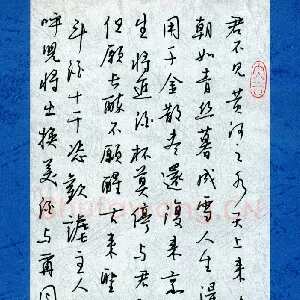 君不見黄河之水天上来
朝如青丝暮成雪人生
用千金散盡還復来烹
生將进酒杯莫停与君
但願長醉不願醒古来聖
斗酒十千恣歡谑主人
呼兒將出换美酒与爾同